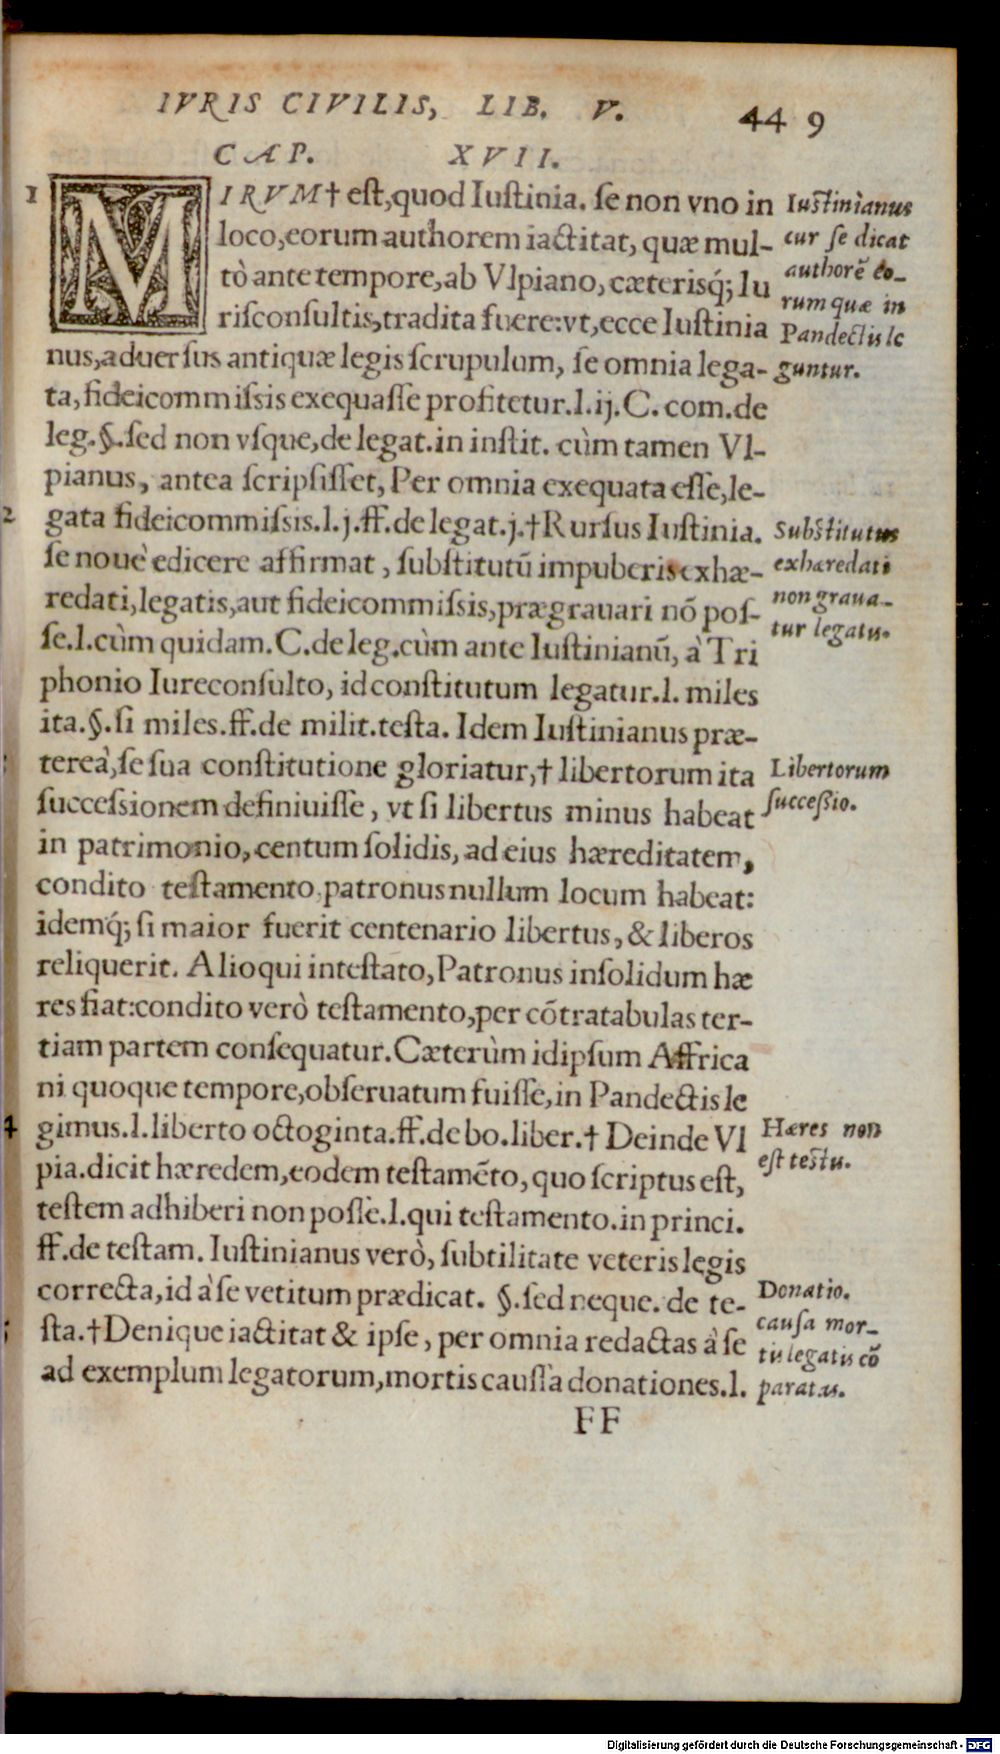 IVRIS CIVILIS, LIB. V. 44 9
CAP. XVII.
1
MIRVM† est, quod Iustinia. se non vno in
loco, eorum authorem iactitat, quæ mul-
tò ante tempore, ab Vlpiano, cæterisq́; Iu
risconsultis, tradita fuere: vt, ecce Iustinia
nus, aduersus antiquæ legis scrupulum, se omnia lega-
ta, fideicommissis exequasse profitetur. l. ij. C. com. de
leg. §. sed non vsque, de legat. in instit. cùm tamen Vl-
pianus, antea scripsisset, Per omnia exequata esse, le-
2
gata fideicommissis. l. j. ff. de legat. j. † Rursus Iustinia.
se nouè edicere affirmat, substitutū impuberis exhæ-
redati, legatis, aut fideicommissis, prægrauari nō pos-
se. l. cùm quidam. C. de leg. cùm ante Iustinianū, à Tri
phonio Iureconsulto, id constitutum legatur. l. miles
ita. §. si miles. ff. de milit. testa. Idem Iustinianus præ-
tereà, se sua constitutione gloriatur, † libertorum ita
successionem definiuisse, vt si libertus minus habeat
in patrimonio, centum solidis, ad eius hæreditatem,
condito testamento, patronus nullum locum habeat:
idemq́; si maior fuerit centenario libertus, & liberos
reliquerit. Alioqui intestato, Patronus insolidum hæ
res fiat: condito verò testamento, per cōtratabulas ter-
tiam partem consequatur. Cæterùm idipsum Affrica
ni quoque tempore, obseruatum fuisse, in Pandectis le
4
gimus. l. liberto octoginta. ff. de bo. liber. † Deinde Vl
pia. dicit hæredem, eodem testamēto, quo scriptus est,
testem adhiberi non posse. l. qui testamento. in princi.
ff. de testam. Iustinianus verò, subtilitate veteris legis
correcta, id à se vetitum prædicat. §. sed neque. de te-
sta. † Denique iactitat & ipse, per omnia redactas à se
ad exemplum legatorum, mortis caussa donationes. l.
FF
Iustinianus
cur se dicat
authorē eo-
rum quæ in
Pandectis le
guntur.
Substitutus
exhæredati
non graua-
tur legatis.
Libertorum
successio.
Hæres non
est testis.
Donatio.
causa mor-
tis legatis cō
paratas.
Digitalisierung gefördert durch die Deutsche Forschungsgemeinschaft - DFG